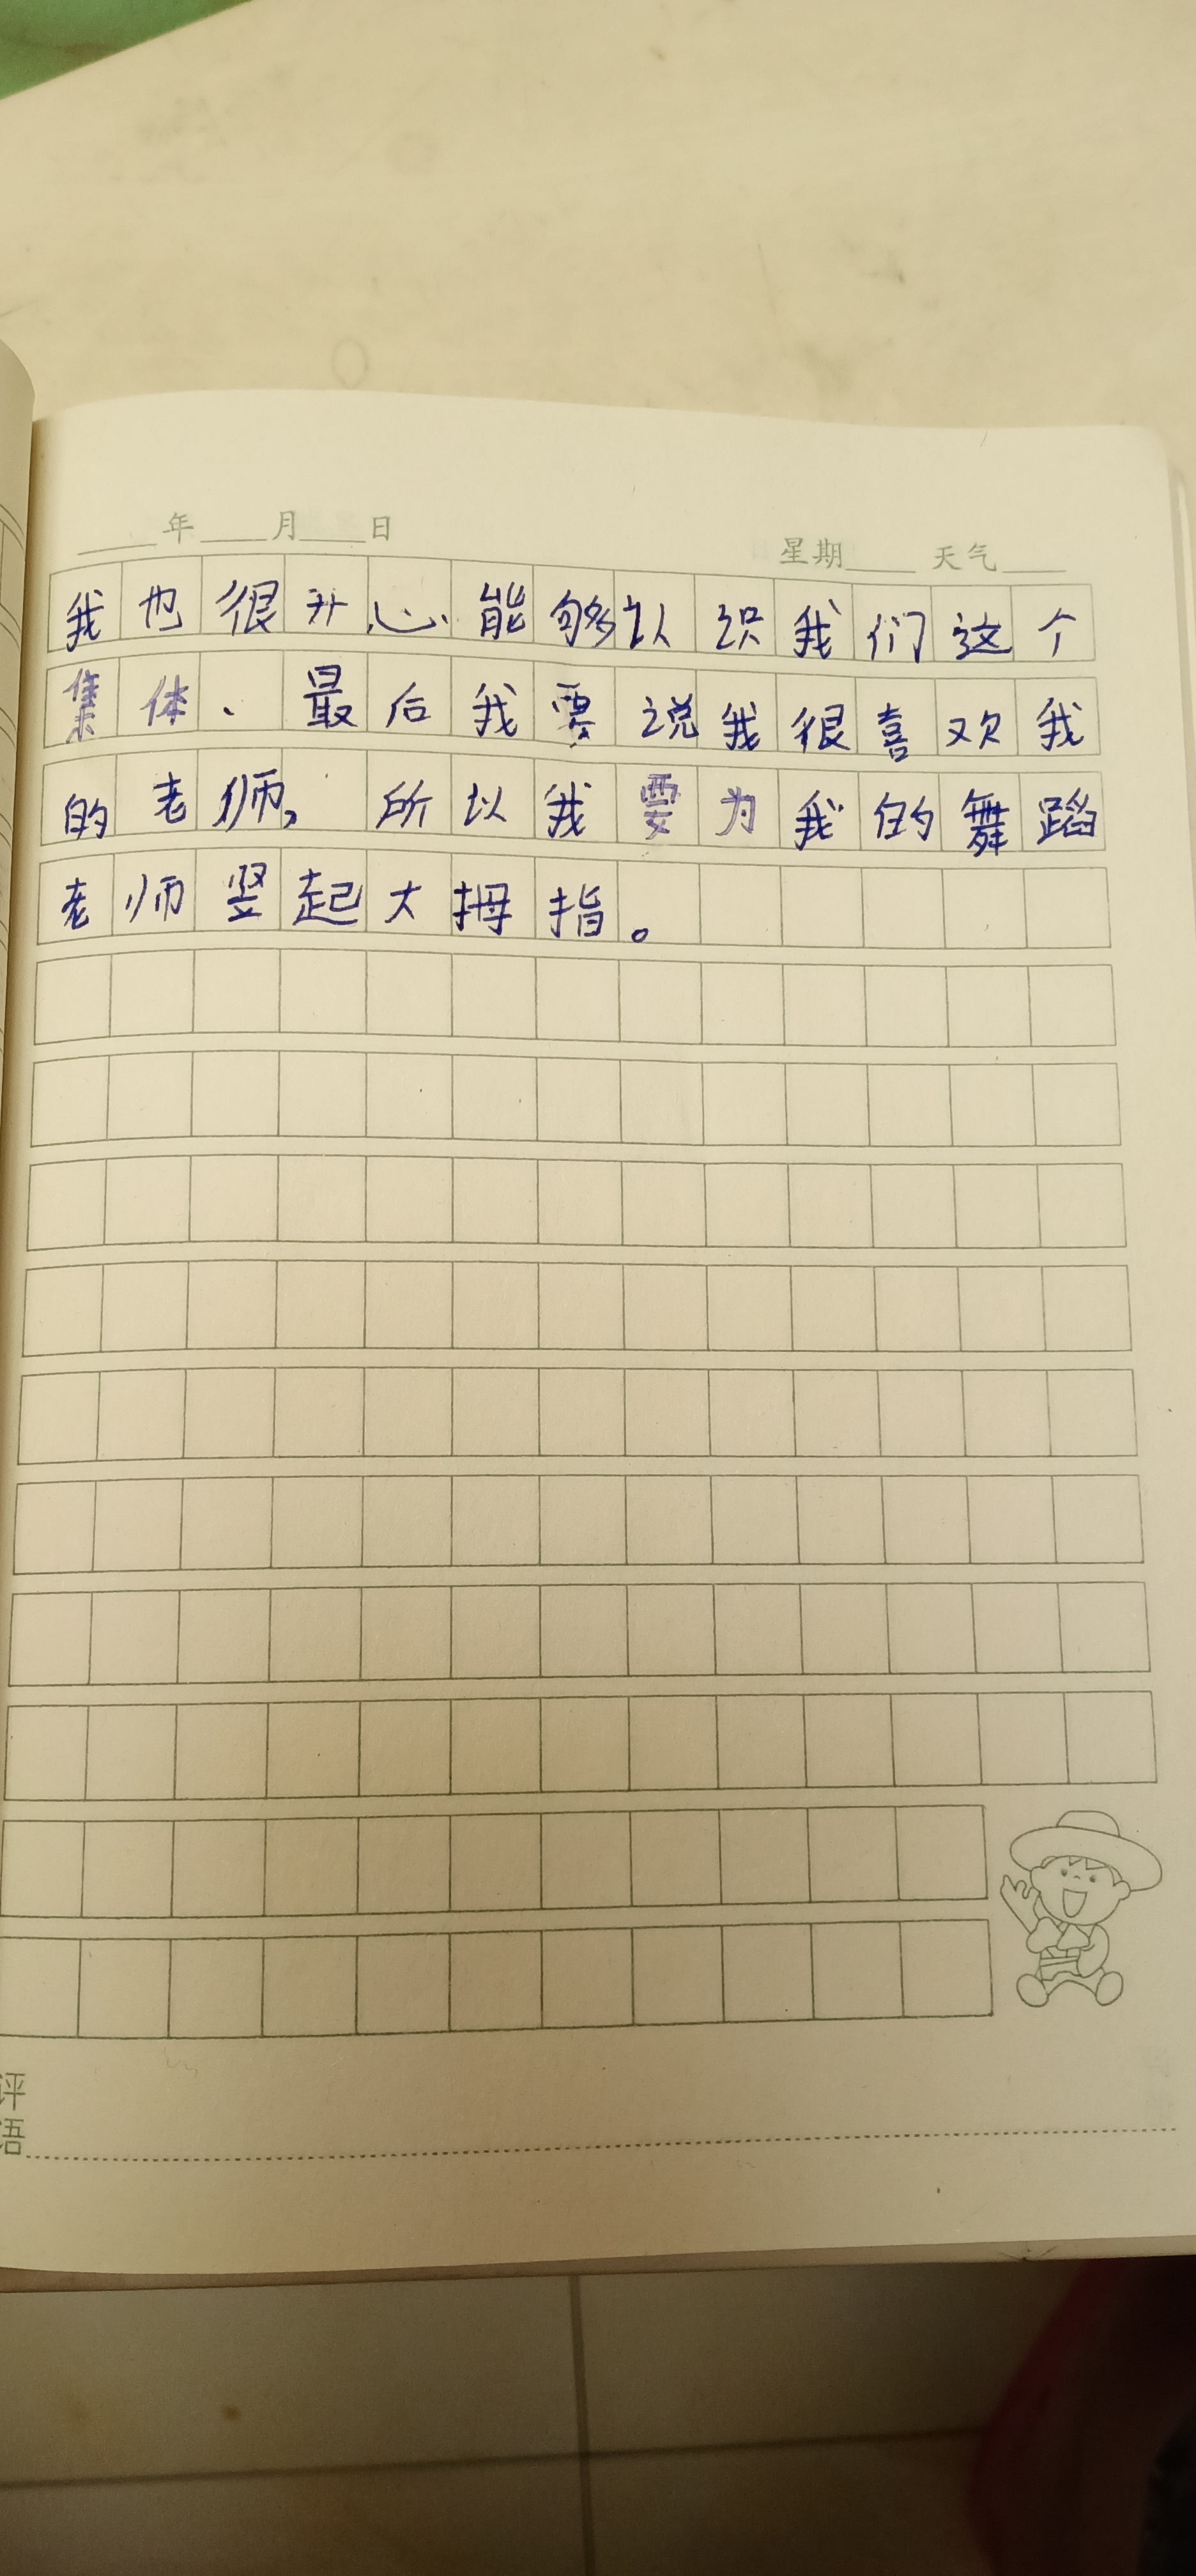 年 月 日 星期 天气
我也很开心能够认识我们这个
集体、最后我要说我很喜欢我
的老师，所以我要为我的舞蹈
老师竖起大拇指。
评
语